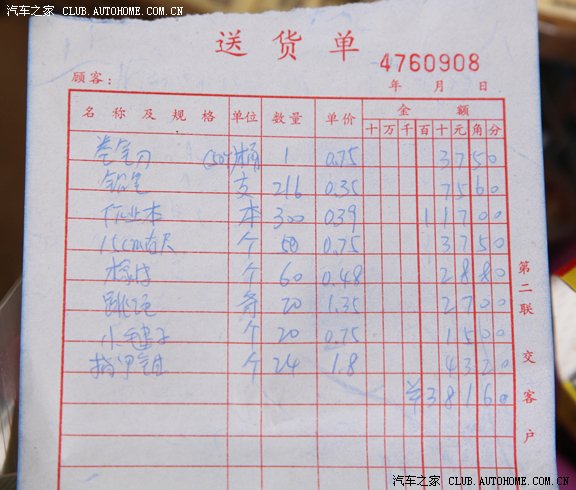 汽车之家 CLUB.AUTOHOME.COM.CN
送货单
4760908
顾客: 年 月 日
名称及规格 单位 数量 单价 金额
十 万 千 百 十 元 角 分
卷笔刀 (50个)桶 1 0.75 3750
铅笔 支 216 0.35 7560
作业本 本 300 0.39 11700
15cm直尺 个 50 0.75 3750
橡皮 个 60 0.48 2880
跳绳 条 20 1.35 2700
小毽子 个 20 0.75 1500
指甲钳 个 24 1.8 4320
¥38160
第二联 交客户
汽车之家 CLUB.AUTOHOME.COM.CN